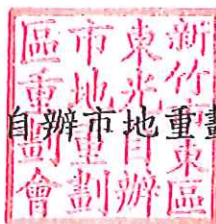 新竹東區
東光自辦
市地重劃
區重劃會
自辦市地重